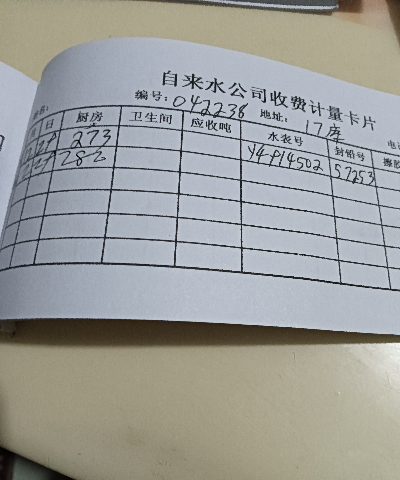 自来水公司收费计量卡片
编号: 042238 地址: 17库
月 日 厨房 卫生间 应收吨 水表号 封铅号
29 273 Y4-P14502 57253